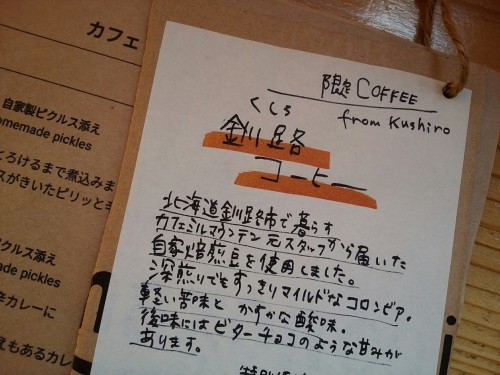 カフェ
自家製ピクルス添え
omemade pickles
くろけるまで煮込みま
スがきいたピリッと辛
ピクルス添え
ade pickles
辛カレーに
えもあるカレ
限定 COFFEE
from Kushiro
くしろ
釧路
コーヒー
北海道釧路市で暮らす
カフェミルマウンテン元スタッフから届いた
自家焙煎豆を使用しました。
深煎りでもすっきりマイルドなコロンビア。
軽い苦味と かすかな酸味。
後味にはビターチョコのような甘みが
あります。